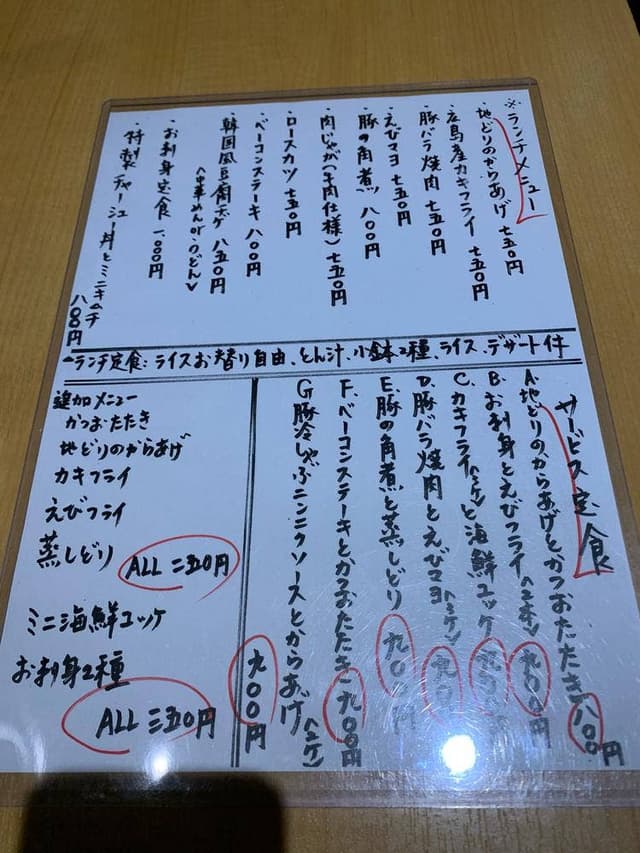 ※ランチメニュー
・地どりのからあげ 七五〇円
・広島産カキフライ 七五〇円
・豚バラ焼肉 七五〇円
・えびマヨ 七五〇円
・豚の角煮 八〇〇円
・肉じゃが(牛肉仕様) 七五〇円
・ロースカツ 七五〇円
・ベーコンステーキ 八〇〇円
・韓国風豆腐チゲ 八五〇円
<中華めんorうどん>
・お刺身定食 一、〇〇〇円
・特製チャーシュー丼とミニキムチ 八〇〇円
ランチ定食:ライスお替り自由、とん汁、小鉢2種、ライス、デザート付
サービス定食
A、地どりのからあげとかつおたたき 八〇〇円
B、お刺身とえびフライ<2本> 九〇〇円
C、カキフライ<2ケ>と海鮮ユッケ 九〇〇円
D、豚バラ焼肉とえびマヨ<2ケ> 九〇〇円
E、豚の角煮と蒸しどり 九〇〇円
F、ベーコンステーキとかつおたたき 九〇〇円
G 豚冷しゃぶニンニクソースとからあげ<2ケ> 九〇〇円
追加メニュー
かつおたたき
地どりのからあげ
カキフライ
えびフライ
蒸しどり
ALL 二五〇円
ミニ海鮮ユッケ
お刺身2種
ALL 三五〇円